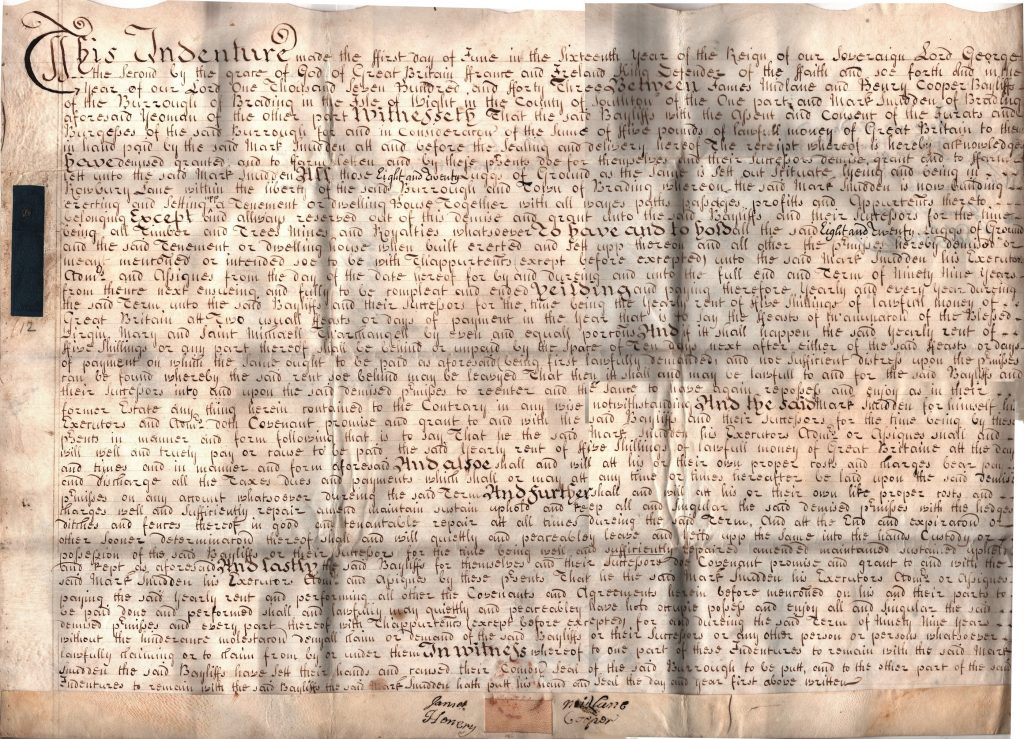 This Indenture made the ffirst day of June in the Sixteenth Year of the Reign of our Sovereign Lord George
the Second by the grace of God of Great Britain ffrance and Ireland King Defender of the ffaith and soe forth and in the
Year of our Lord One Thousand Seven Hundred and fforty Three Between James Midlane and Henry Cooper Bayliffs
of the Burrough of Brading in the Isle of Wight in the County of Southton of the One part and Mark Snudden of Brading
aforesaid Yeoman of the other part Witnesseth That the said Bayliffs with the Assent and Consent of the Jurats and
Burgesses of the said Burrough for and in Consideration of the Sume of ffive pounds of lawfull money of Great Britain to them
in hand paid by the said Mark Snudden att and before the Sealing and delivery hereof The receipt whereof is hereby acknowledged
Have demised granted and to ffarm letten and by these psents doe for themselves and their Successors demise grant and to ffarm
lett unto the said Mark Snudden All those Eight and Twenty Luggs of Ground as the same is Sett out Scituate lyeing and being in
Rowbury Lane within the liberty of the said Burrough and Town of Brading whereon the said Mark Snudden is now building
erecting and Setting upp a Tenement or dwelling House Together with all wayes paths passages profitts and Appurtents thereto
belonging Except and allways reserved out of this demise and grant unto the said Bayliffs and their Successors for the time
being all Timber and Trees Mines and Royalties whatsoever To have and to hold all the said Eight and Twenty Luggs of Ground
and the said Tenement or dwelling house when built erected and Sett upp thereon and all other the pmisses hereby demised or
meant mentioned or intended soe to be with Thappurtents (except before excepted) unto the said Mark Snudden his Executors
Admrs and Assignes from the day of the date hereof for by and dureing and unto the full end and Term of Ninety Nine Years
from thence next ensueing and fully to be compleat and ended Yeilding and paying therefore yearly and every year dureing
the said Term unto the said Bayliffs and their Successors for the time being the Yearly rent of ffive Shillings of lawfull money of
Great Britain att Two usuall ffeasts or days of payment in the Year that is to say the ffeasts of th'anunciation of the Blessed
Virgin Mary and Saint Michaell Tharchangell by even and equall portions And if itt shall happen the said yearly rent of
ffive Shillings or any part thereof shall be behind or unpaid by the space of Ten days next after either of the said ffeasts or days
of payment on which the same ought to be paid as aforesaid (being first lawfully demanded) and noe sufficient distress upon the pmisses
can be found whereby the said rent soe behind may be leavyed That then itt shall and may be lawfull to and for the said Bayliffs and
their Successors into and upon the said demised pmisses to reenter and the same to have again repossess and enjoy as in their
former Estate any thing herein contained to the Contrary in any wise notwithstanding And the said Mark Snudden for himself his
Executors and Admrs doth Covenant promise and grant to and with the said Bayliffs and their Successors for the time being by these
psents in manner and form following that is to say That he the said Mark Snudden his Executors Admrs or Assignes shall and
will well and truely pay or cause to be paid the said yearly rent of ffive Shillings of lawfull money of Great Britaine att the days
and times and in manner and form aforesaid And alsoe shall and will att his or their own proper costs and charges bear pay
and discharge all the Taxes dues and payments which shall or may att any time or times hereafter be laid upon the said demised
pmisses on any account whatsoever dureing the said Term And further shall and will att his or their own like proper costs and
charges well and sufficiently repair amend maintain sustain uphold and keep all and singular the said demised pmisses with the hedges
ditches and fences thereof in good and tenantable repair att all times dureing the said Term, And att the End and expiration or
other sooner determination thereof shall and will quietly and peaceabley leave and yeild upp the same into the hands Custody or
possession of the said Bayliffs or their Successors for the time being well and sufficiently repaired amended maintained sustained upheld
and kept as aforesaid And lastly the said Bayliffs for themselves and their Successors doe Covenant promise and grant to and with the
said Mark Snudden his Executors Admrs and Assignes by these psents That he the said Mark Snudden his Executors Admrs or Assignes
paying the said yearly rent and performing all other the Covenants and Agreements herein before mentioned on his and their parts to
be paid done and performed shall and lawfully may quietly and peaceabley have hold occupie possess and enjoy all and singular the said
demised pmisses and every part thereof with Thappurtents (except before excepted) for and dureing the said Term of Ninety Nine Years
without the hinderance molestacon denyall claim or demand of the said Bayliffs or their Successors or any other person or persons whatsoever
lawfully claiming or to claim from by or under them In witness whereof to one part of these Indentures to remain with the said Mark
Snudden the said Bayliffs have sett their hands and caused their Comon Seal of the said Burrough to be putt, and to the other part of the said
Indentures to remain with the said Bayliffs the said Mark Snudden hath putt his hand and Seal the day and year first above written
James Midlane
Henery Cooper
112